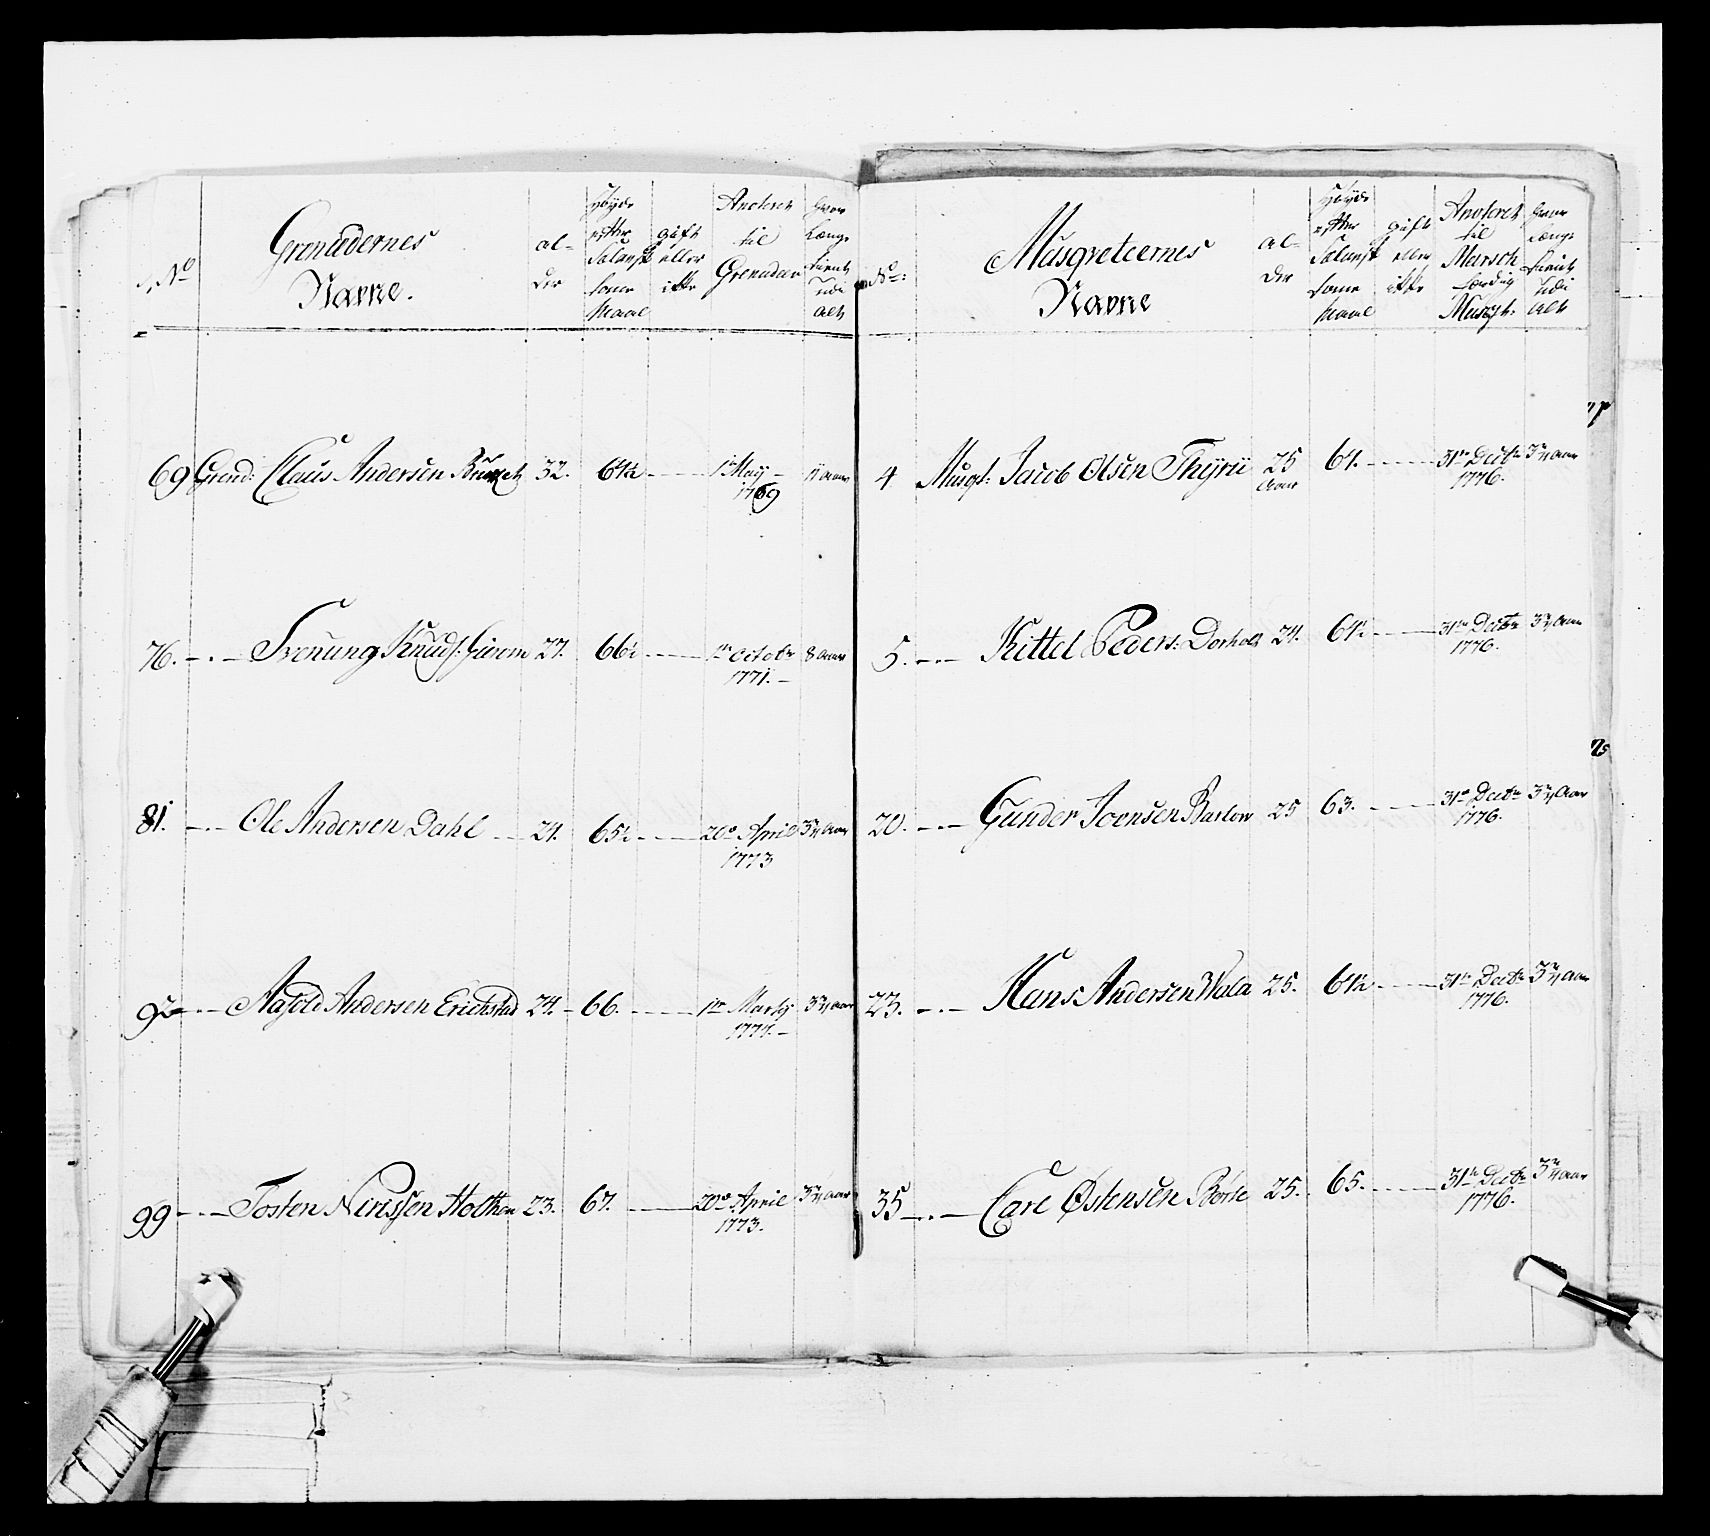 No
Grenadernes
Navne.
al-
der
høyde
efter
Sølanst
some
Maal
gift
eller
ikke
Anoteret
til
Grenadeer
hvor
Længe
tient
udi
alt
69 Grend: Claus Andersen 32. 64½ 1te Maij 1769 11 aar
76. Svenung Knuds: 27. 66½ 1te Octobr 1771. 8 aar
81. Ole Andersen Dahl 24. 65½ 20de April 1773 aar
92 Andersen Erichstad 24. 66. 1te Martij aar
99 Tosten Nerissen Holthen 23. 67. 20de April 1773. aar
No:
Musqveteernes
Navne
al-
der
høyde
efter
Sølanst
some
Maal
gift
eller
ikke
Anoteret
til
Marsch
færdig
Musqt.
hvor
længe
tient
udi
alt
4 Musqt: Jacob Olsen 25 Aar 64. 31te Decbr 1776. aar
5. Kittel Peders: Dorholt 24. 64½ 31te Decbr 1776. aar
20. Gunder Joensen 25 63. 31te Decbr 1776. Aar
23. Hans Andersen Wala 25. 64½ 31te Decbr 1776. aar
35 Carl Østensen 25. 65. 31te Decbr 1776. aar